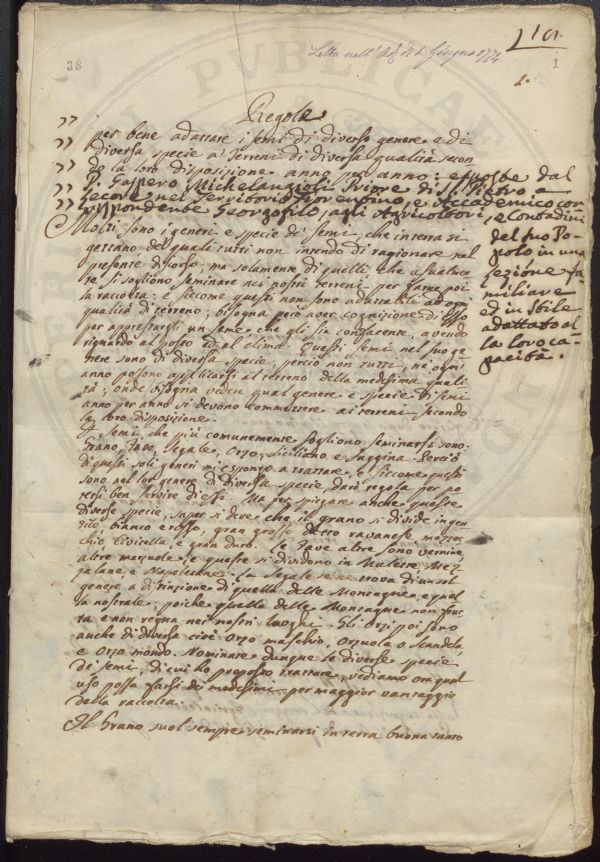 Letta nell' Ad. de 1. Giugno 1774
101.
38
1
1.
Regole
per bene adattare i semi di diverso genere e di
diversa specie a' Terreni di diversa qualità secon
do la loro disposizione anno per anno: esposte dal
P. Gaspero Michelangioli Priore di S. Pietro a
Gecore nel Territorio Fiorentino, e Accademico cor
rispondente Georgofilo, agli Agricoltori, e Contadini
del suo Po
polo in una
sezione fa
miliare
ed in stile
adattato al
la loro ca
pacità.
Molti sono i generi e specie de' semi che in terra si
gettano de' quali tutti non intendo di ragionare nel
presente discorso; ma solamente di quelli, che usualmen
te si sogliono seminare nei nostri terreni, per farne poi
la raccolta: e siccome questi non sono adattabili ad ogni
qualità di terreno; bisogna però aver cognizione di esso
per apprestargli un seme che gli sia confacente, avendo
riguardo al posto ed al clima. Questi semi nel suo ge
nere sono di diversa specie; perciò non tutti, ne ogn'
anno possono applicarsi al terreno della medesima quali
tà; onde bisogna vedere qual genere e specie di semi
anno per anno si devono commettere ai terreni secondo
la loro disposizione.
I semi, che più comunemente sogliono seminarsi sono
Grano, Fave, Segale, Orzo, Siciliano e Saggina. Perciò
di questi soli generi mi espongo a trattare, e siccome questi
sono nel lor genere di diversa specie, darò regola per po
tersi ben servire di essi. Ma per spiegare anche queste
diverse specie, saper si deve che il grano si divide in gen
tile, bianco e rosso, gran grosso detto ravanese mazzoc
chio Civitella, e gran duro. Le Fave altre sono vernine,
altre marzuole, e queste si dividono in Mulette Mez
zalane, e Napoletane: la Segale se ne trova di un sol
genere a distinzione di quella delle Montagne, e quel
la nostrale; poichè quella delle Montagne non frut
ta e non regna nei nostri luoghi. Gli Orzi poi sono
anche di diversa cioè Orzo maschio, Orzuola o Scandela,
e Orzo mondo. Nominate dunque le diverse specie
de' semi, di cui ho proposto trattare, vediamo ora qual
uso possa farsi dei medesimi per maggior vantaggio
della raccolta.
Il Grano suol sempre seminarsi in terra buona tanto